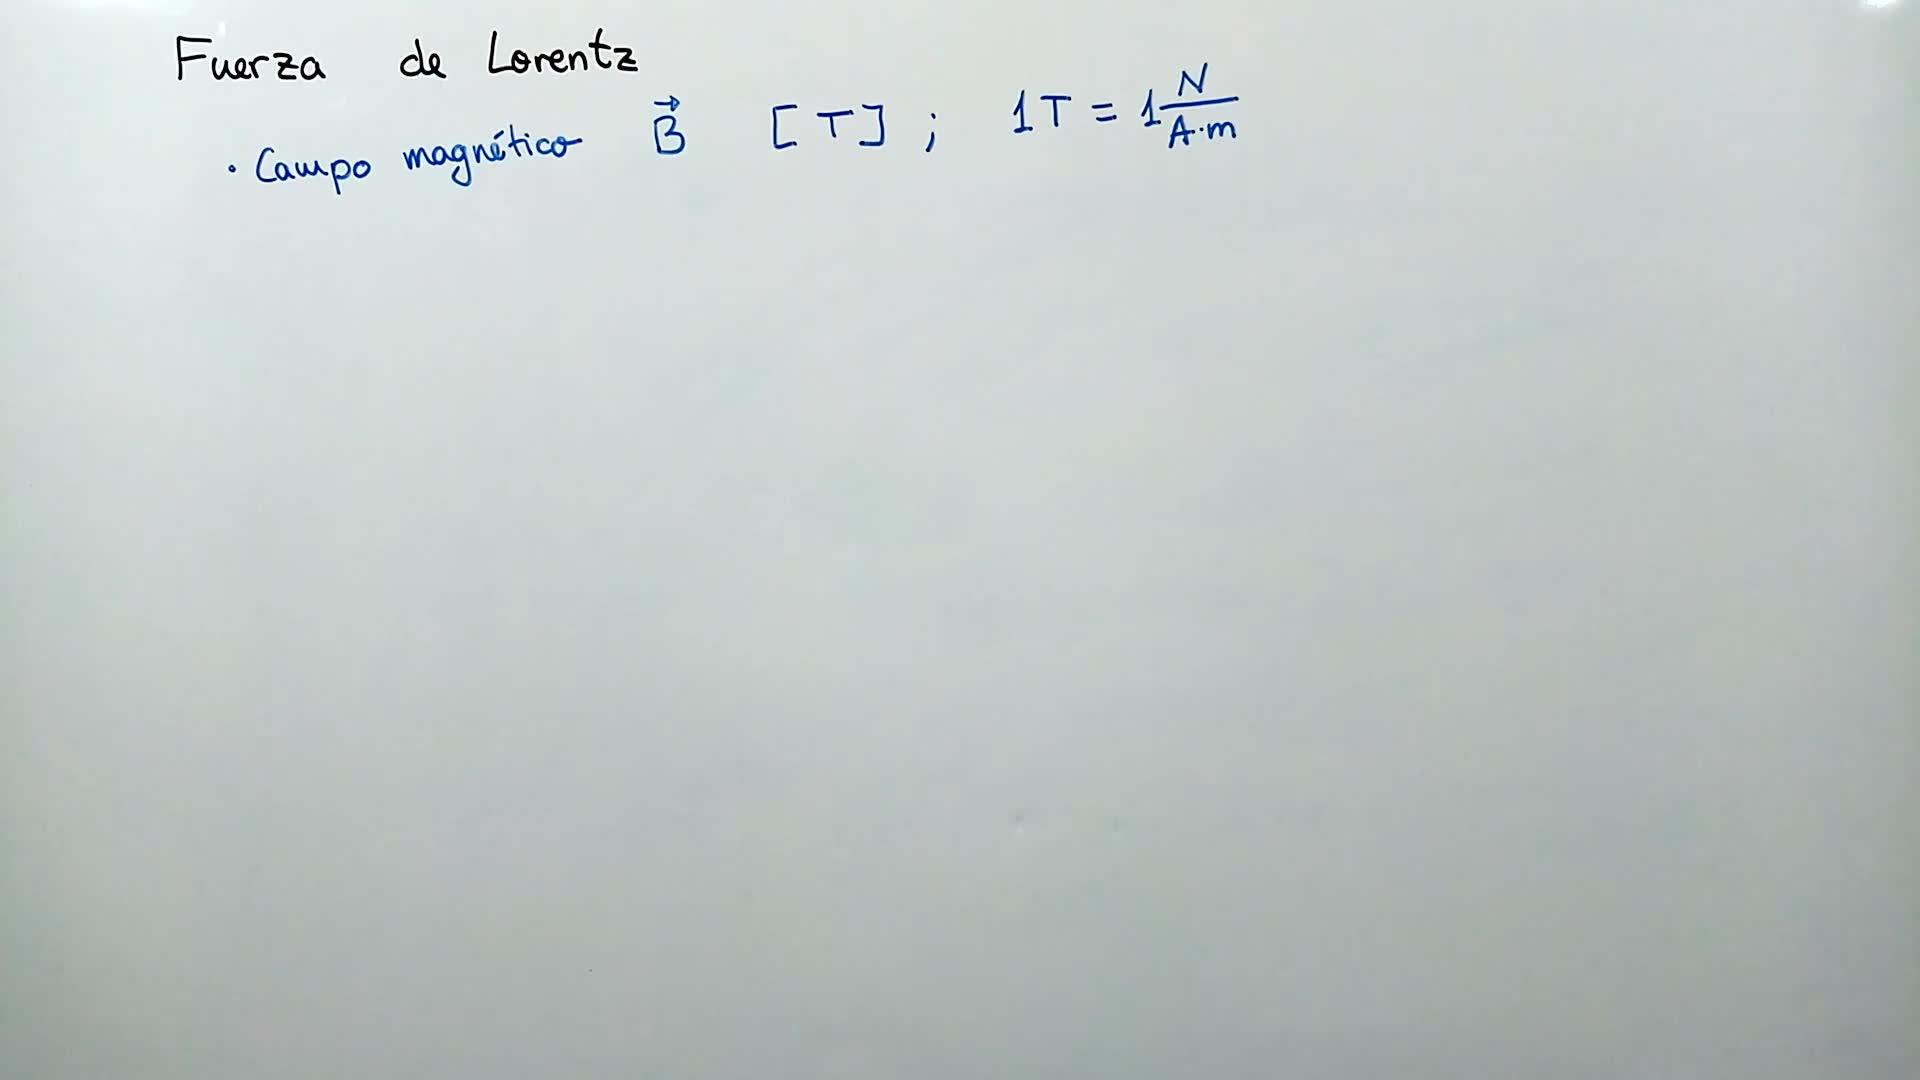 Fuerza de Lorentz
· Campo magnético B⃗ [T] ; 1T = 1 N/A·m